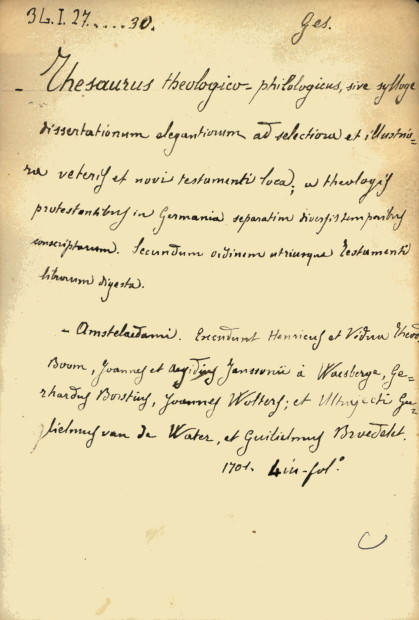 3L.I.27.....30. Ges.
- Thesaurus theologico- philologicus, sive sylloge
dissertationum elegantiorum ad selectiora et illustrio=
ra veteris et novi testamenti loca; a theologis
protestantibus in Germania separatim diversis temporibus
conscriptarum. Secundum ordinem utriusque Testamenti
librorum digesta.
- Amstelaedami. Excudunt Henricus et Vidua Theod.
Boom, Joannes et Aegidius Janssonii à Waesberge, Ge=
rhardus Borstius, Joannes Wolters; et Ultrajecti Gu=
lielmus van de Water, et Guilielmus Broedelet.
1701. 4 in-fol.º